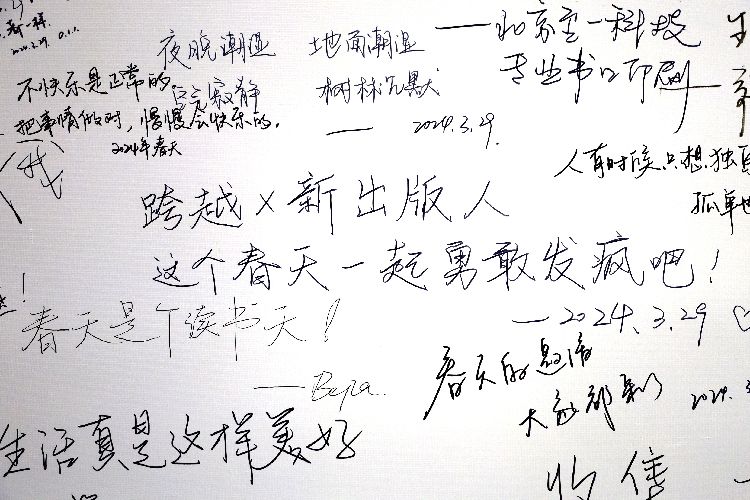 2024.2.29
夜晚潮湿 地面潮湿
寂静 树林沉默
— 2024.3.29.
不快乐是正常的,
把事情做对,慢慢会快乐的.
2024年春天
——北京
专业书口印刷
人有时候只想独
孤单
跨越×新出版人
这个春天一起勇敢发疯吧!
—2024.3.29
春天是个读书天!
春天的邀请
大家都来了
2024.3
生活真是这样美好